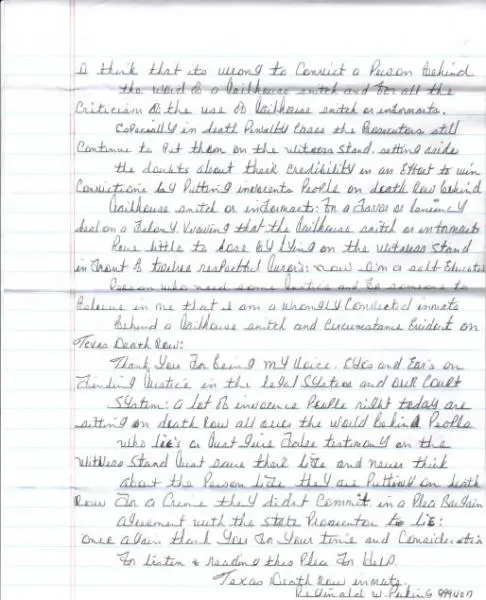 I think that its wrong to Convict a Person behind
the word of a Jailhouse snitch and For all the
Criticism of the use of Jailhouse snitch or informants.
Especially in death Penalty Cases the Prosecutors still
Continue to Put them on the witness stand. setting aside
the doubts about their credibility in an Effort to win
Convictions by Putting innocents People on death row behind
Jailhouse snitch or informants: For a Favor or leniency
deal on a Felony. Knowing that the Jailhouse snitch or informants
have little to lose by lying on the witness stand
in Front of twelve respectful Jurors: now I'm a self-Educated
Person who need some Justice and for someone to
Believe in me that I am a wrongly Convicted inmate
Behind a Jailhouse snitch and Circumstance Evident on
Texas Death Row:
Thank You For being my Voice. Eyes and Ear's on
Finding Justice in the legal System and our Court
System: a lot of innocence People right today are
sitting on death row all over the world Behind People
who lie's or Just give False testimony on the
witness stand Just save their life and never think
about the Person life they are Putting on death
row For a Crime they didnt Commit in a Plea Bargain
agreement with the state Prosecutor to lie:
once again thank You For Your time and Consideration
To listen & reading this Plea For Help.
Texas Death row inmate.
Reginald W. Perkins 999407